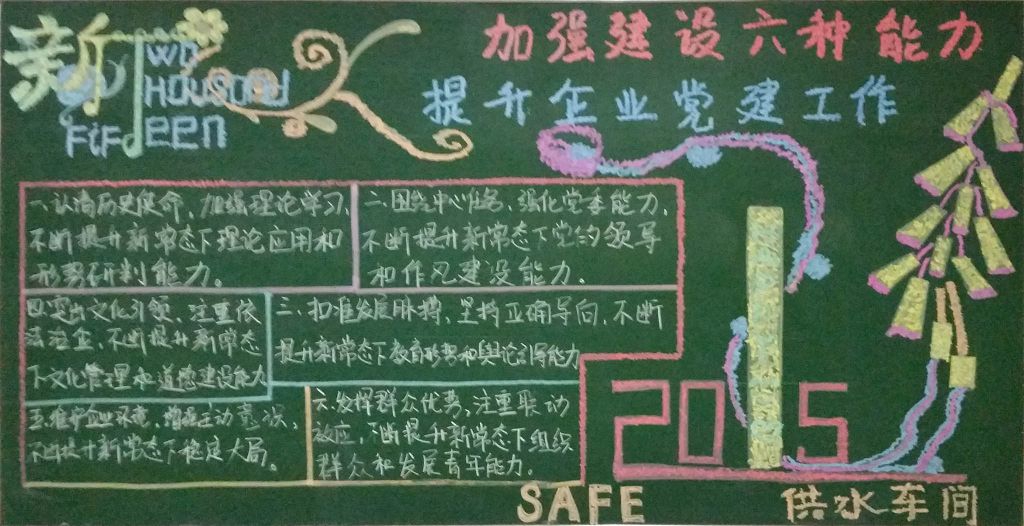 加强建设六种能力
提升企业党建工作
新
TWO
THOUSAND
FiFTeen
一、认清历史使命，加强理论学习，
不断提升新常态下理论应用和
形势研判能力。
二、围绕中心任务，强化党委能力，
不断提升新常态下党的领导
和作风建设能力。
三、扣准发展脉搏，坚持正确导向，不断
提升新常态下教育形势和舆论引导能力
四、突出文化引领，注重依
法治企，不断提升新常态
下文化管理和道德建设能力
五、维护企业环境，增强主动意识，
不断提升新常态下稳定大局。
六、发挥群众优势，注重联动
效应，不断提升新常态下组织
群众和发展青年能力。
2015
SAFE
供水车间